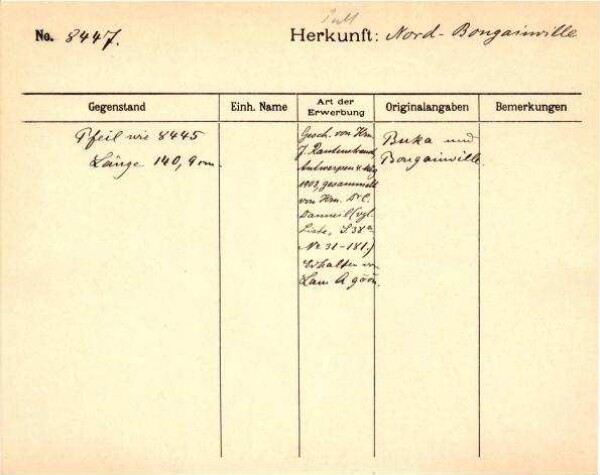 No. 8447.
Herkunft: Nord-Bougainville
Gegenstand
Einh. Name
Art der
Erwerbung
Originalangaben
Bemerkungen
Pfeil wie 8445
Länge 140,9 cm.
Gesch. von Hrn.
J. Rautenstrauch,
Antwerpen
1903, gesammelt
von Hrn. Dr C.
Danneil (vgl.
Liste, S.38a
Nr 31-181.)
Erhalten
Buka und
Bougainville.